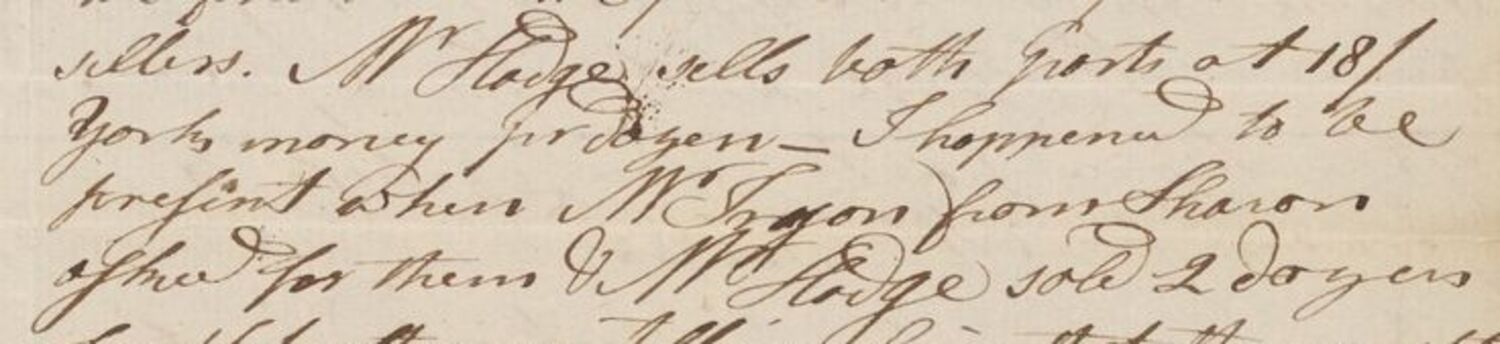 sellers. Mr Hodge sells both parts at 18/
York money pr dozen — I happened to be
present when Mr Tryon from Sharon
asked for them & Mr Hodge sold 2 dozen